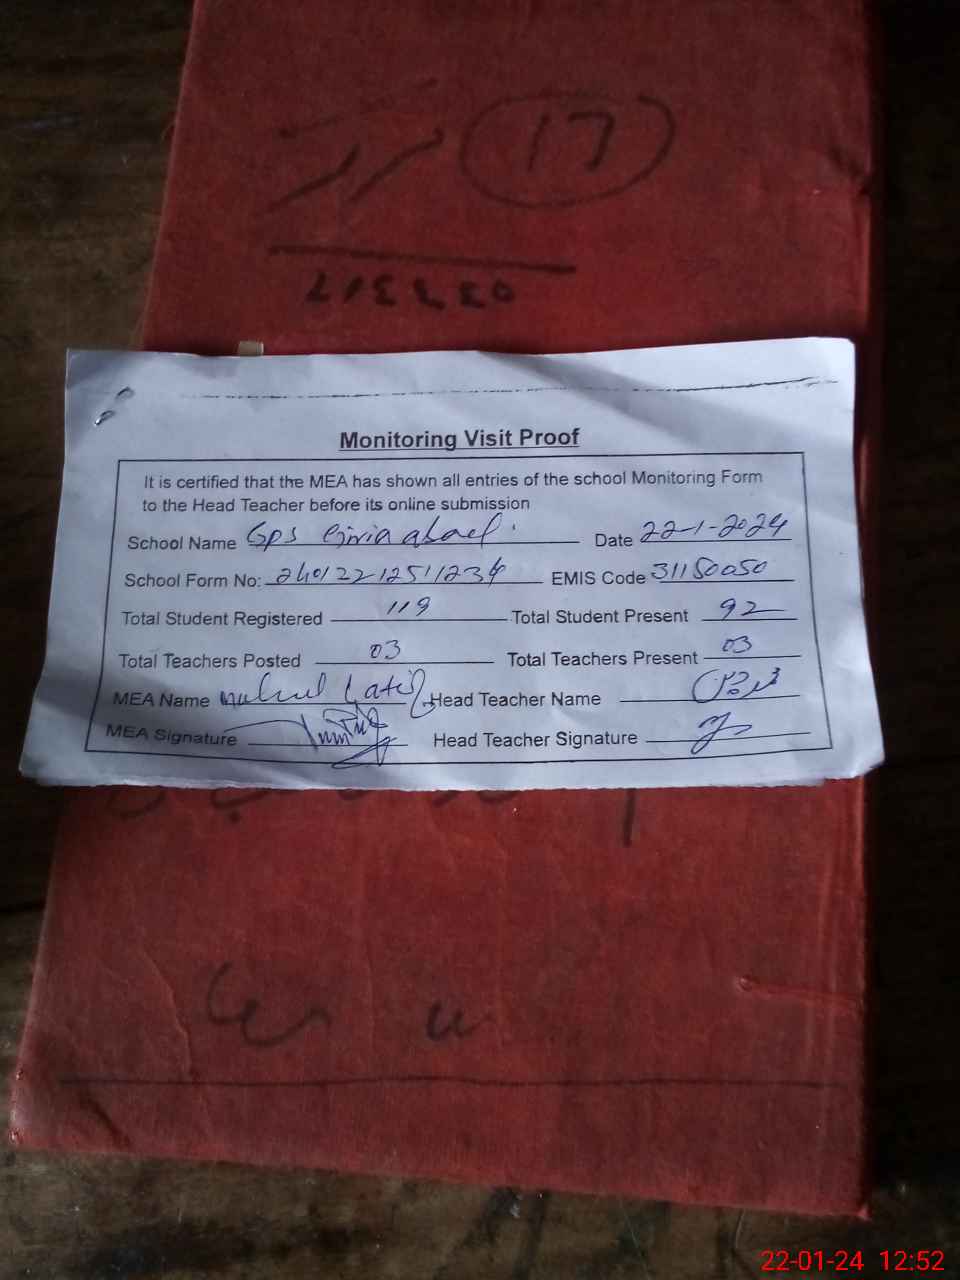 17
Monitoring Visit Proof
It is certified that the MEA has shown all entries of the school Monitoring Form
to the Head Teacher before its online submission
School Name GPS Date 22-1-2024
School Form No: 24012212511234 EMIS Code 31150050
Total Student Registered 119 Total Student Present 92
Total Teachers Posted 03 Total Teachers Present 03
MEA Name Latif Head Teacher Name
MEA Signature Head Teacher Signature
22-01-24 12:52